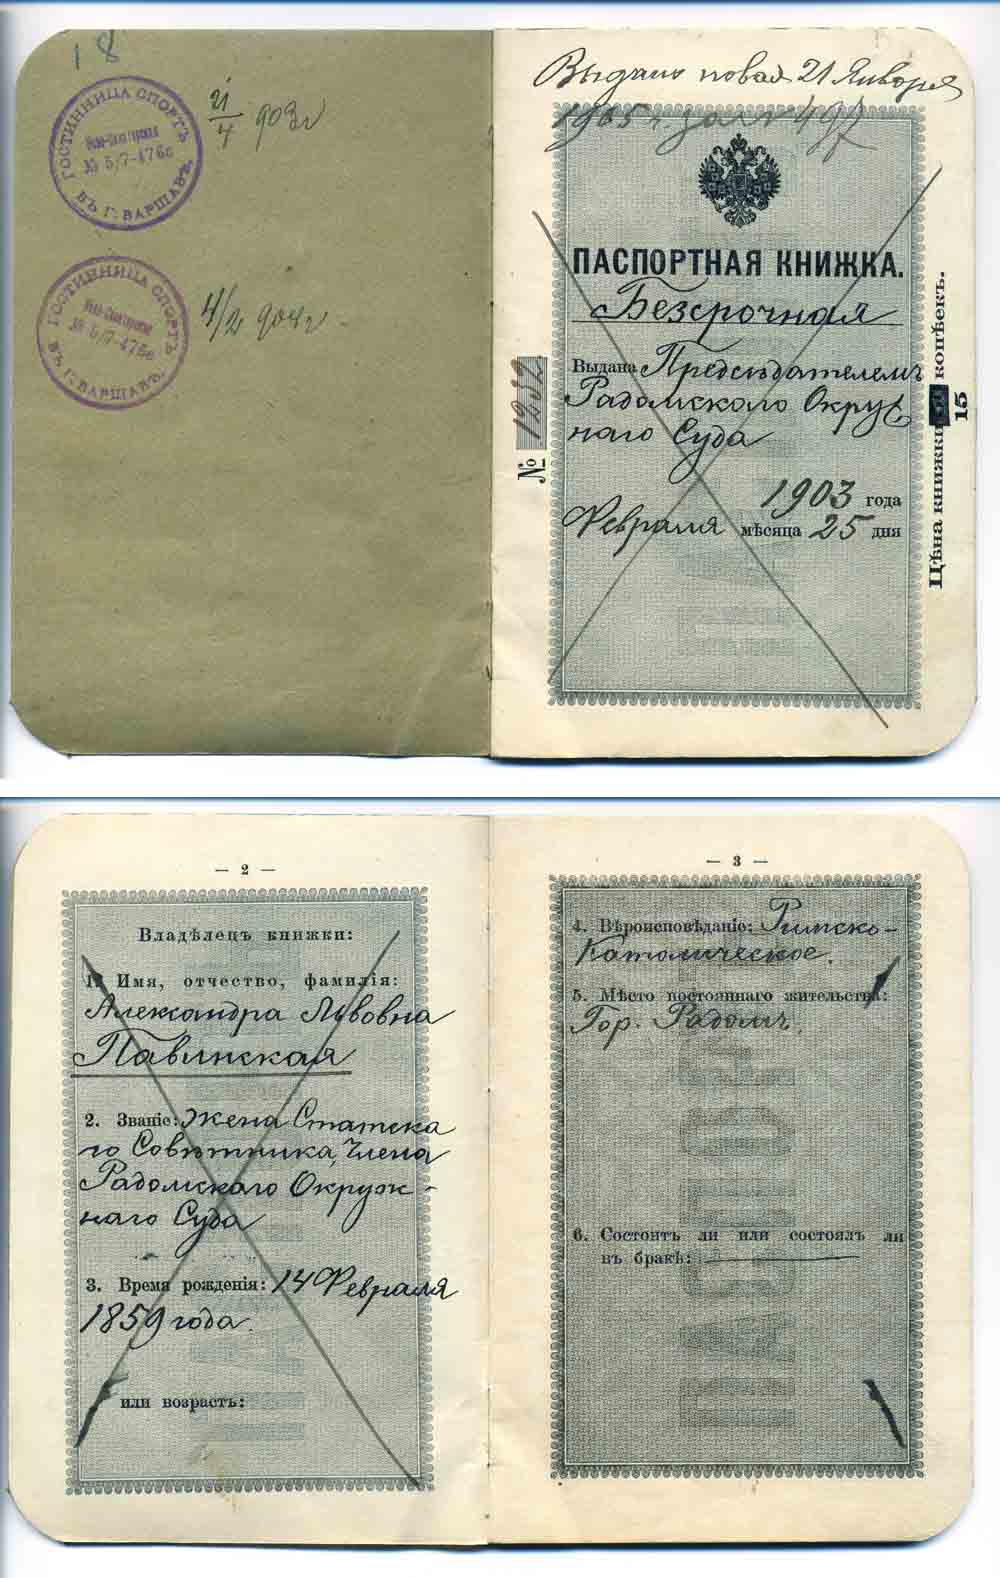 18
ГОСТИННИЦА СПОРТЪ
№ 5/7-476
ВЪ Г. ВАРШАВѢ.
21/4 903 г
ГОСТИННИЦА СПОРТЪ
№ 5/7-476
ВЪ Г. ВАРШАВѢ.
4/2 904 г
Выдана новая 21 Января
1905 г. за № 497
ПАСПОРТНАЯ КНИЖКА.
Безсрочная
Выдана Предсѣдателемъ
Радомскаго Окруж
наго Суда
1903 года
Февраля мѣсяца 25 дня
№ 1232
Цѣна книжки 15 копѣекъ.
— 2 —
Владѣлецъ книжки:
1. Имя, отчество, фамилія:
Александра Львовна
Павинская
2. Званіе: Жена Статска
го Совѣтника, Члена
Радомскаго Окруж-
наго Суда
3. Время рожденія: 14 Февраля
1859 года.
или возрастъ:
— 3 —
4. Вѣроисповѣданіе: Римско-
Католическое.
5. Мѣсто постояннаго жительства:
Гор. Радомъ.
6. Состоитъ ли или состоялъ ли
въ бракѣ:
ПАСПОРТ